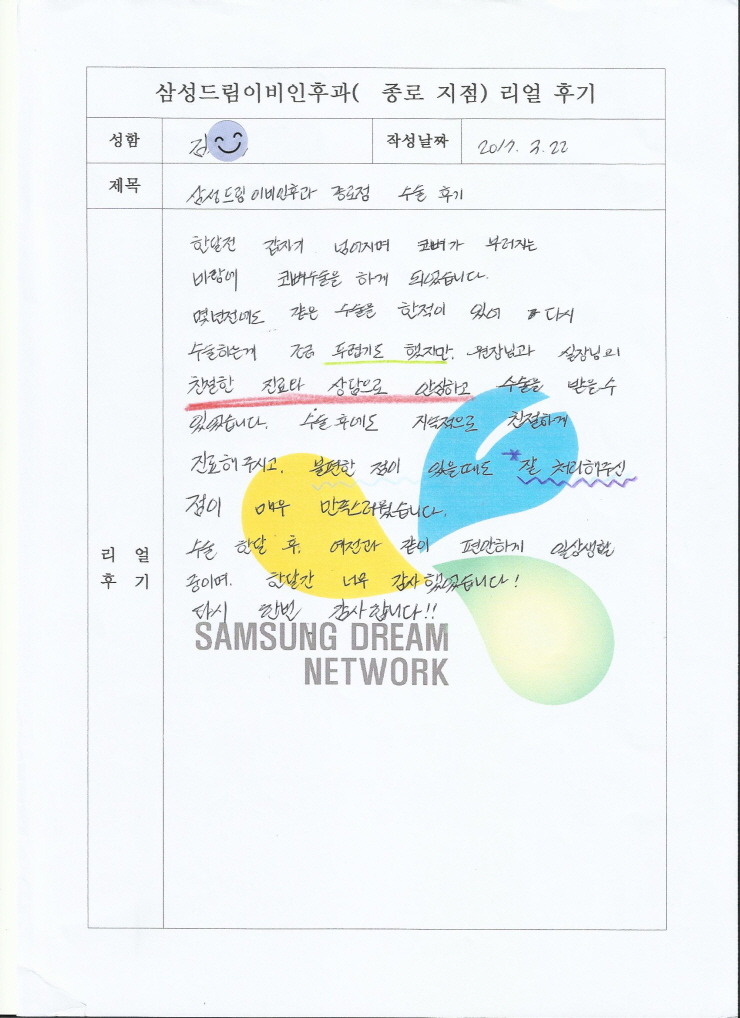 삼성드림이비인후과( 종로 지점) 리얼 후기
성함 김 작성날짜 2017. 3. 22
제목 삼성드림이비인후과 종로점 수술 후기
한달전 갑자기 넘어지며 코뼈가 부러지는
바람에 코뼈수술을 하게 되었습니다.
몇년전에도 같은 수술을 한적이 있어 다시
수술하는게 조금 두렵기도 했지만, 원장님과 실장님의
친절한 진료와 상담으로 안심하고 수술을 받을 수
있었습니다. 수술 후에도 지속적으로 친절하게
진료해 주시고, 불편한 점이 있을때도 *잘 처리해주신
점이 매우 만족스러웠습니다.
수술 한달 후, 여전과 같이 편안하게 일상생활
중이며, 한달간 너무 감사했었습니다!
다시 한번 감사합니다!!
리얼
후기
SAMSUNG DREAM
NETWORK